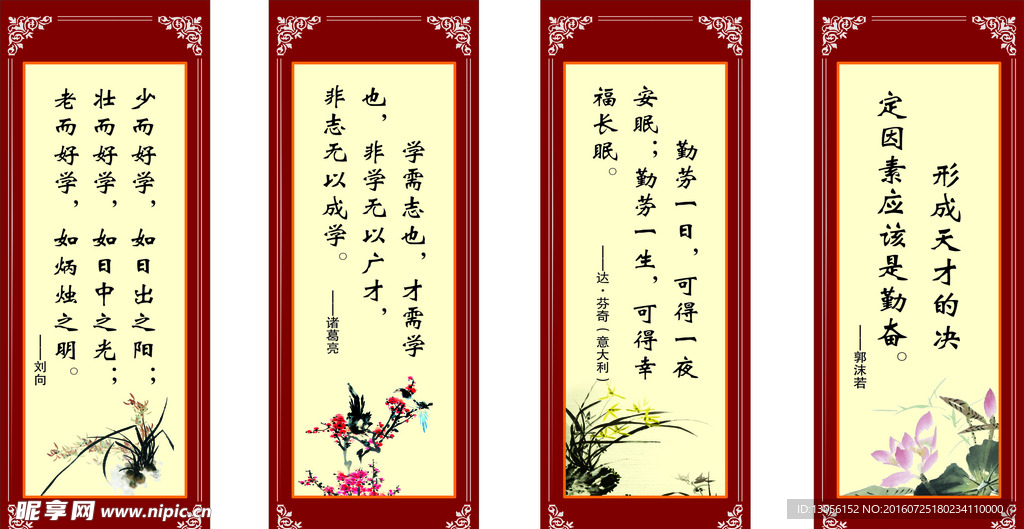 少而好学，如日出之阳；
壮而好学，如日中之光；
老而好学，如炳烛之明。
——刘向
学需志也，才需学
也，非学无以广才，
非志无以成学。
——诸葛亮
勤劳一日，可得一夜
安眠；勤劳一生，可得幸
福长眠。
——达·芬奇（意大利）
形成天才的决
定因素应该是勤奋。
——郭沫若
昵享网 www.nipic.cn
ID:13056152 NO:20160725180234110000